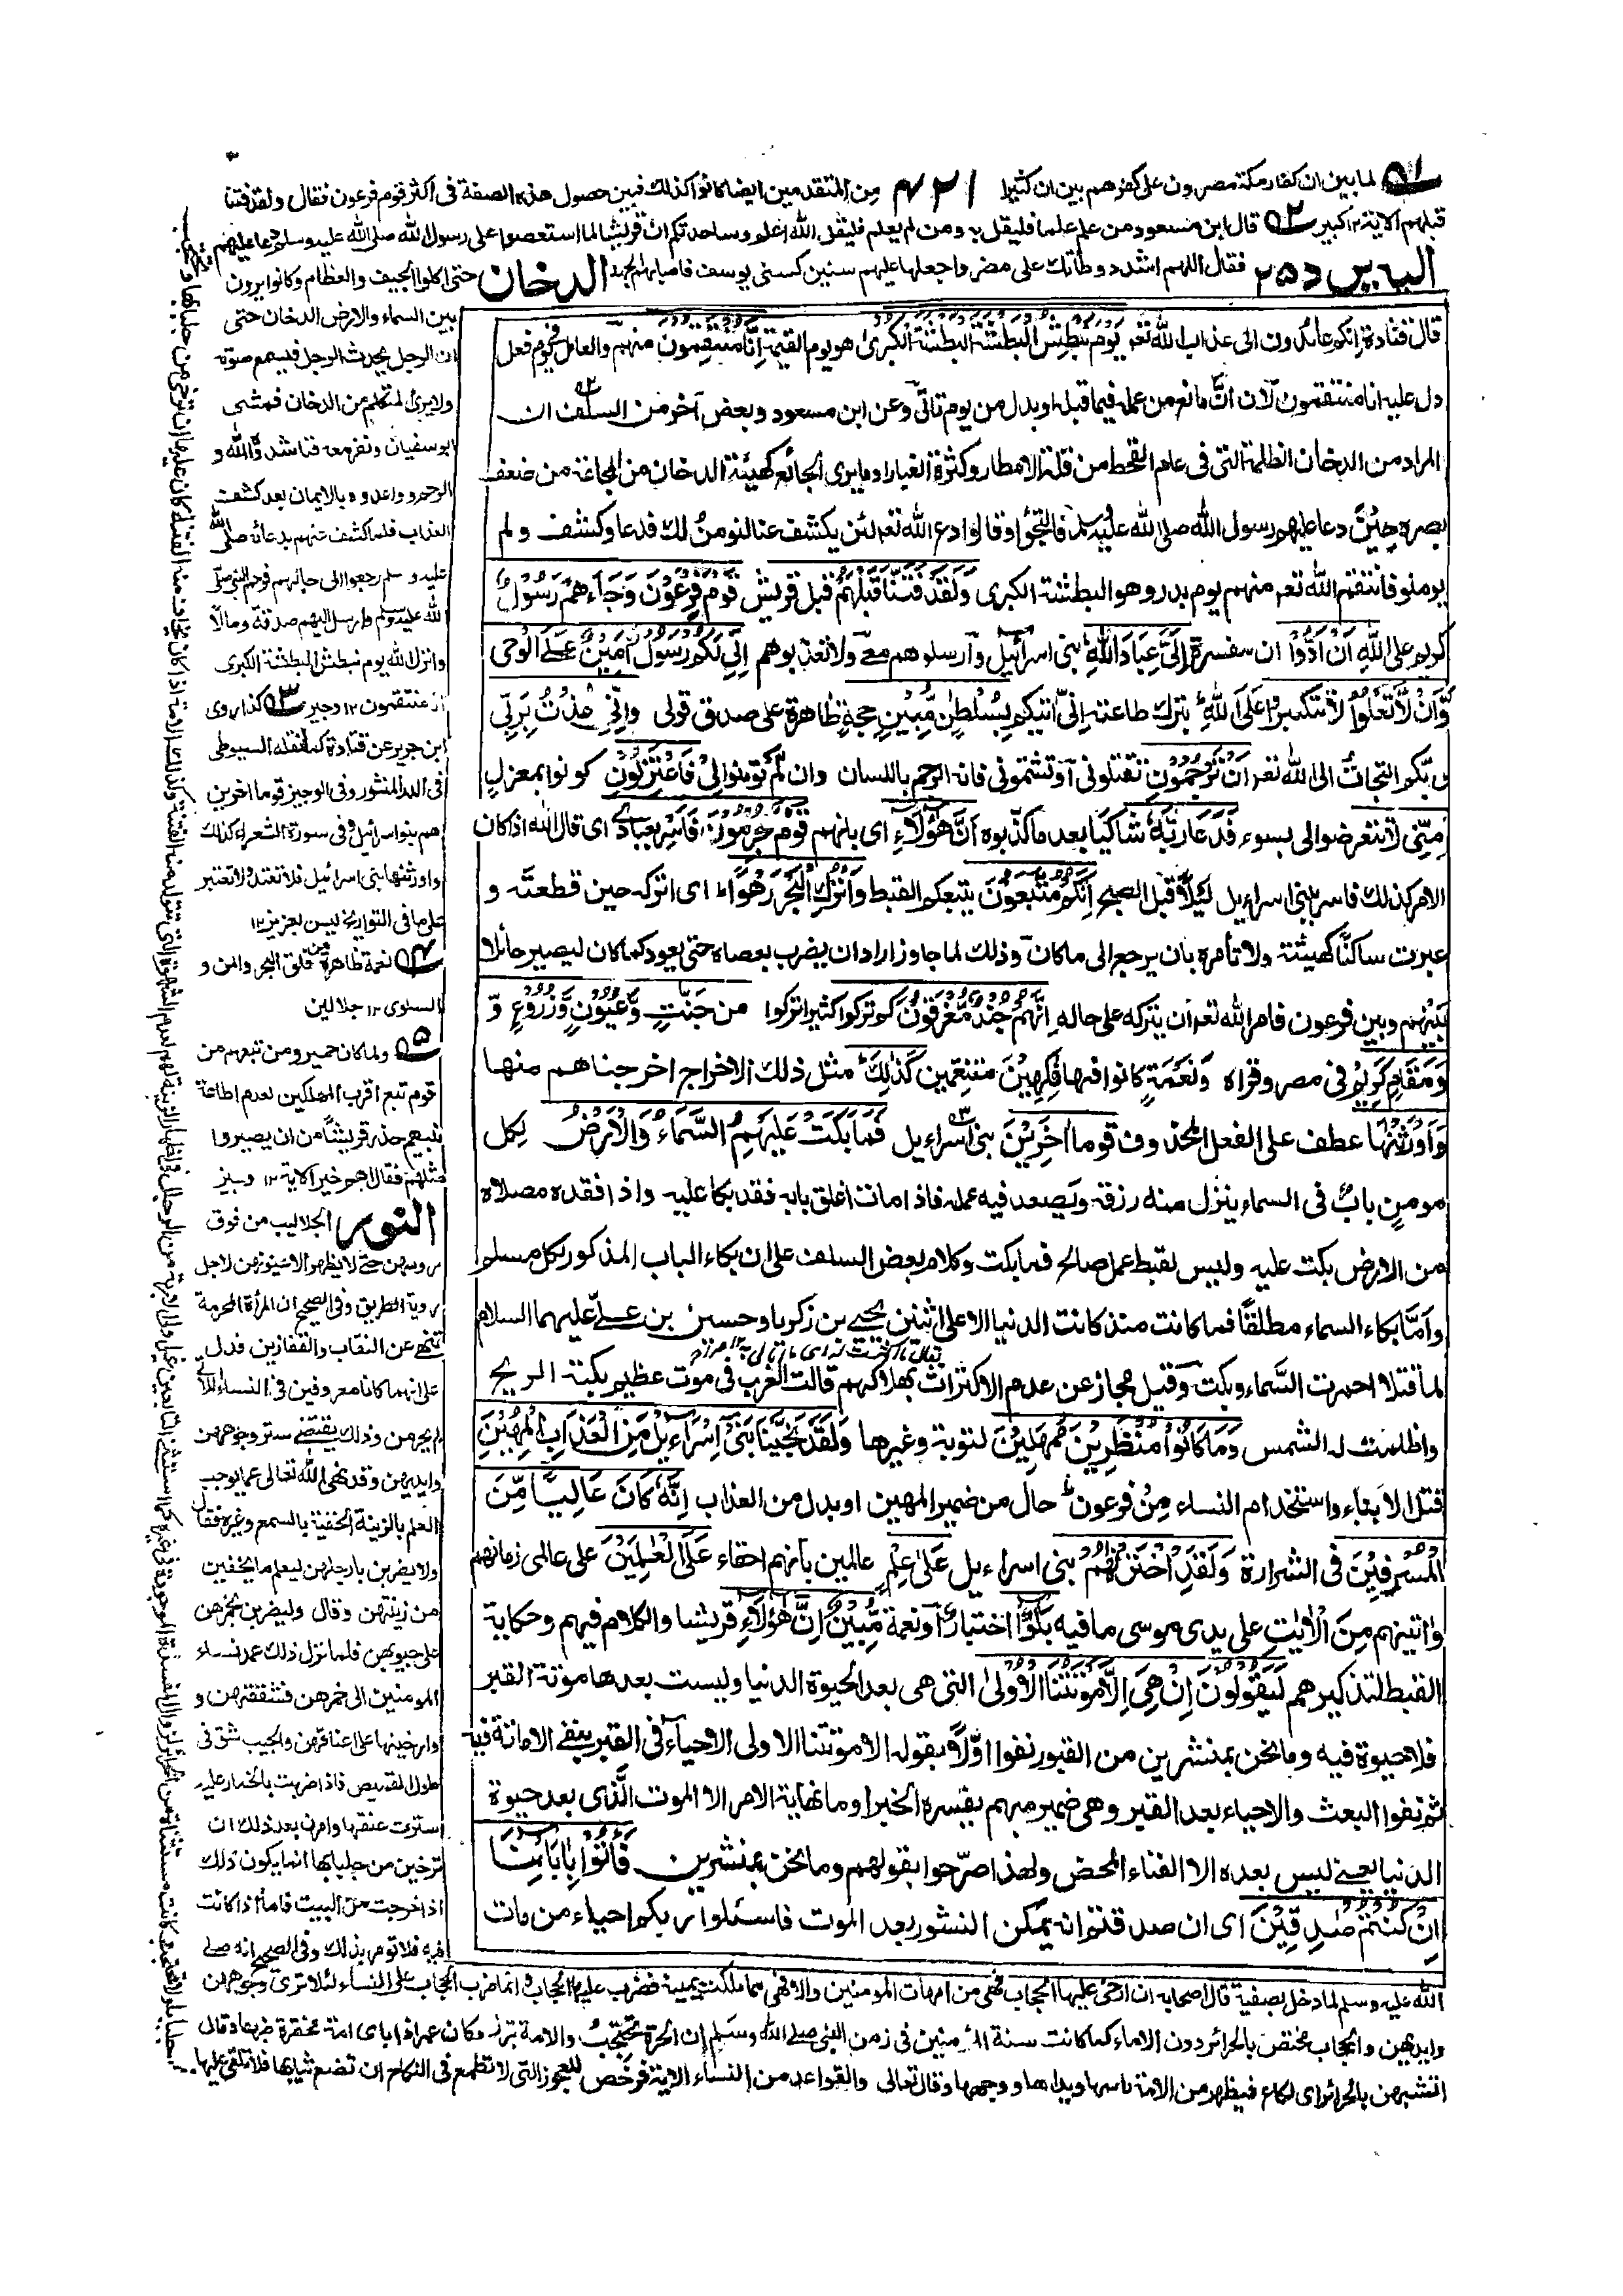 لما بين ان كفار مكة مصرون على كفرهم بين ان كثيرا ٤٢١ من المتقدمين ايضا كانوا كذلك فبين حصول هذه الصفة فى اكثر قوم فرعون فقال ولقد فتنا
قبلهم الاية ١٢ كبير قال ابن مسعود من علم علما فليقل به ومن لم يعلم فليقل الله اعلم وساحدثكم ان قريشا لما استعصوا على رسول الله صلى الله عليه وسلم دعا عليهم
اليه يرد ٢٥ فقال اللهم اشدد وطاتك على مضر واجعلها عليهم سنين كسنى يوسف فاصابهم الجهد الدخان حتى اكلوا الجيف والعظام وكانوا يرون
قال قتادة انكم عائدون الى عذاب الله تعم يَوْمَ نَبْطِشُ الْبَطْشَةَ الْكُبْرٰى هو يوم القيمة اِنَّا مُنْتَقِمُوْنَ منهم والعامل فى يوم فعل
دل عليه انا منتقمون لان ان مانع من عمله فيما قبله او بدل من يوم تأتى وعن ابن مسعود وبعض آخر من السلف ان
المراد من الدخان الظلمة التى فى عام القحط من قلة الامطار وكثرة الغبار او ما يرى الجائع كهيئة الدخان من المجاعة من ضعف
بصره حين دعا عليهم رسول الله صلى الله عليه وسلم فالتجؤا وقالوا ادع الله تعم لئن يكشف عنا لنومن لك فدعا وكشف ولم
يومنو فانتقم الله تعم منهم يوم بدر وهو البطشة الكبرى وَلَقَدْ فَتَنَّا قَبْلَهُمْ قبل قريش قَوْمَ فِرْعَوْنَ وَجَاءَهُمْ رَسُوْلٌ
كريم على الله اَنْ اَدُّوْا ان مفسرة اِلَيَّ عِبَادَ اللهِ بنى اسرائيل وارسلوهم معى ولا تعذبوهم اِنِّي لَكُمْ رَسُوْلٌ اَمِيْنٌ على الوحى
وَّاَنْ لَّا تَعْلُوْا لا تتكبروا عَلَى اللهِ بترك طاعته اِنِّي اٰتِيْكُمْ بِسُلْطٰنٍ مُّبِيْنٍ حجة ظاهرة على صدق قولى وَاِنِّي عُذْتُ بِرَبِّي
وربكم التجأت الى الله تعم اَنْ تَرْجُمُوْنِ تقتلونى او تشتمونى فانه الرجم باللسان وَاِنْ لَّمْ تُؤْمِنُوْا لِيْ فَاعْتَزِلُوْنِ كونوا بمعزل
منى لا تتعرضوا لى بسوء فَدَعَا رَبَّهٗ شاكيا بعد ما كذبوه اَنَّ هٰؤُلَاءِ اى بانهم قَوْمٌ مُّجْرِمُوْنَ فَاَسْرِ بِعِبَادِيْ اى قال الله اذا كان
الامر كذلك فاسر ببنى اسراءيل لَيْلًا قبل الصبح اِنَّكُمْ مُّتَّبَعُوْنَ يتبعكم القبط وَاتْرُكِ الْبَحْرَ رَهْوًا اى اتركه حين قطعته و
عبرت ساكنا كهيئته ولا تأمره بان يرجع الى ما كان وذلك لما جاوز اراد ان يضرب بعصاه حتى يعود كما كان ليصير حائلا
بينهم وبين فرعون فامر الله تعم ان يتركه على حاله اِنَّهُمْ جُنْدٌ مُّغْرَقُوْنَ كَمْ تَرَكُوْا كثيرا تركوا مِنْ جَنّٰتٍ وَّعُيُوْنٍ وَّزُرُوْعٍ وَّ
وَمَقَامٍ كَرِيْمٍ فى مصر وقراه وَنَعْمَةٍ كَانُوْا فِيْهَا فٰكِهِيْنَ متنعمين كَذٰلِكَ مثل ذلك الاخراج اخرجناهم منها
وَاَوْرَثْنٰهَا عطف على الفعل المحذوف قَوْمًا اٰخَرِيْنَ بنى اسراءيل فَمَا بَكَتْ عَلَيْهِمُ السَّمَاءُ وَالْاَرْضُ لكل
مومن باب فى السماء ينزل منه رزقه ويصعد فيه عمله فاذا مات اغلق بابه فقد بكا عليه واذا فقده مصلاه
من الارض بكت عليه وليس لقبط عمل صالح فما بكت وكلام بعض السلف على ان بكاء الباب المذكور لكل مسلم
واما بكاء السماء مطلقا فما كانت منذ كانت الدنيا الا على اثنين يحيى بن زكريا وحسين بن على عليهما السلام
لما قتلا احمرت السماء وبكت وقيل مجاز عن عدم الاكتراث بهلاكهم قالت العرب فى موت عظيم بكته الريح
واظلمت له الشمس وَمَا كَانُوْا مُنْظَرِيْنَ ممهلين لتوبة وغيرها وَلَقَدْ نَجَّيْنَا بَنِيْ اِسْرَاءِيْلَ مِنَ الْعَذَابِ الْمُهِيْنِ
قتل الابناء واستخدام النساء مِنْ فِرْعَوْنَ حال من ضمير المهين او بدل من العذاب اِنَّهٗ كَانَ عَالِيًا مِّنَ
الْمُسْرِفِيْنَ فى الشرارة وَلَقَدِ اخْتَرْنٰهُمْ بنى اسراءيل عَلٰى عِلْمٍ عالمين بانهم احقاء عَلَى الْعٰلَمِيْنَ على عالمى زمانهم
وَاٰتَيْنٰهُمْ مِنَ الْاٰيٰتِ على يدى موسى مَا فِيْهِ بَلٰؤٌا اختبار او نعمة مُّبِيْنٌ اِنَّ هٰؤُلَاءِ قريشا والكلام فيهم وحكاية
القبط لتذكيرهم لَيَقُوْلُوْنَ اِنْ هِيَ اِلَّا مَوْتَتُنَا الْاُوْلٰى التى هى بعد الحيوة الدنيا وليست بعدها موتة القبر
فلا حيوة فيه وما نحن بمنشرين من القبور نفوا اولا بقوله الا موتتنا الاولى الاحياء فى القبر ينفى الاماتة فيه
ثم نفوا البعث والاحياء بعد القبر وهى ضمير مبهم يفسره الخبر او ما نهاية الامر الا الموت الذى بعد حيوة
الدنيا يعنى ليس بعده الا الفناء المحض ولهذا صرحوا بقولهم وما نحن بمنشرين فَأْتُوْا بِاٰبَائِنَا
اِنْ كُنْتُمْ صٰدِقِيْنَ اى ان صدقتم انه يمكن النشور بعد الموت فاسئلوا ربكم احياء من مات
بين السماء والارض الدخان حتى
ان الرجل يحدث الرجل فيسمع صوته
ولا يرى المتكلم من الدخان فمشى
ابو سفيان ونفر معه فناشدوا الله و
الرحم وواعدوه بالايمان بعد كشف
العذاب فلما كشف عنهم بدعائه صلى الله
عليه وسلم رجعوا الى حالهم فرحم النبى صلى
الله عليه وسلم وارسل اليهم صدقة ومالا
وانزل الله يوم نبطش البطشة الكبرى
انا منتقمون ١٢ وجيز كذا روى
ابن جرير عن قتادة كما نقله السيوطى
فى الدر المنثور وفى الوجيز قوما اخرين
هم بنو اسرائيل وفى سورة الشعراء كذلك
واورثنها بنى اسرائيل فلا تعتد ولا تعتبر
على ما فى التواريخ ليس بعزيز ١٢
نعمة ظاهرة من فلق البحر والمن و
السلوى ١٢ جلالين
ولما كان حمير ومن تبعهم من
قوم تبع اقرب المهلكين لعدم اطاعة
نبيهم حذر قريشا من ان يصيروا
مثلهم فقال اهم خير الاية ١٢ وجيز
النور الجلاليب من فوق
روسهن حتى لا يظهر الا عيونهن لاجل
روية الطريق وفى الصحيح ان المرأة المحرمة
تنهى عن النقاب والقفازين فدل
على انهما كانا معروفين فى النساء اللاتى
لم يحرمن وذلك يقتضى ستر وجوههن
وايديهن وقد نهى الله تعالى عما يوجب
العلم بالزينة الخفية بالسمع وغيره فقال
ولا يضربن بارجلهن ليعلم ما يخفين
من زينتهن وقال وليضربن بخمرهن
على جيوبهن فلما نزل ذلك عمد نساء
المومنين الى خمرهن فشققنهن و
وارخينها على اعناقهن والجيب شق فى
طول القميص فاذا ضربت بالخمار عليه
سترت عنقها وامرن بعد ذلك ان
ترخين من جلبابها انما يكون ذلك
اذا خرجت من البيت فاما اذا كانت
فيه فلا تومر بذلك وفى الصحيح انه صلى
الله عليه وسلم لما دخل بصفية قال اصحابه ان ارخى عليها الحجاب فهى من امهات المومنين والا فهى مما ملكت يمينه فضرب عليها الحجاب وانما ضرب الحجاب على النساء لئلا ترى وجوههن
وايديهن والحجاب مختص بالحرائر دون الاماء كما كانت سنة المؤمنين فى زمن النبى صلى الله وسلم ان الحرة تحتجب والامة تبرز وكان عمر اذا راى امة مختمرة ضربها وقال
اتتشبهن بالحرائر اى لكاع فيظهر من الامة راسها ويداها ووجهها وقال تعالى والقواعد من النساء الاية فرخص للعجوز التى لا تطمع فى النكاح ان تضع ثيابها فلا تلقى عليها